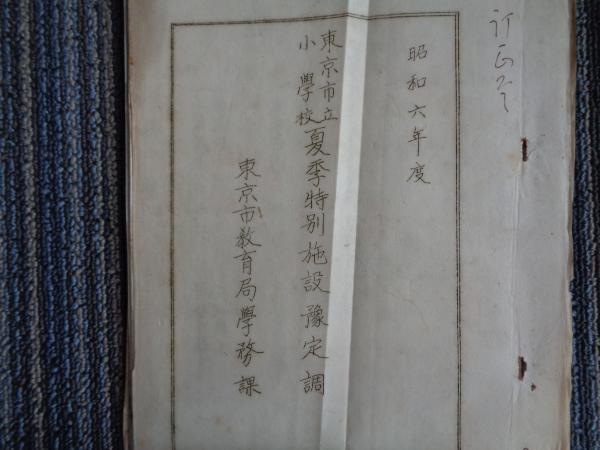 訂正ズミ
昭和六年度
東京市立
小學校
夏季特別施設豫定調
東京市教育局學務課